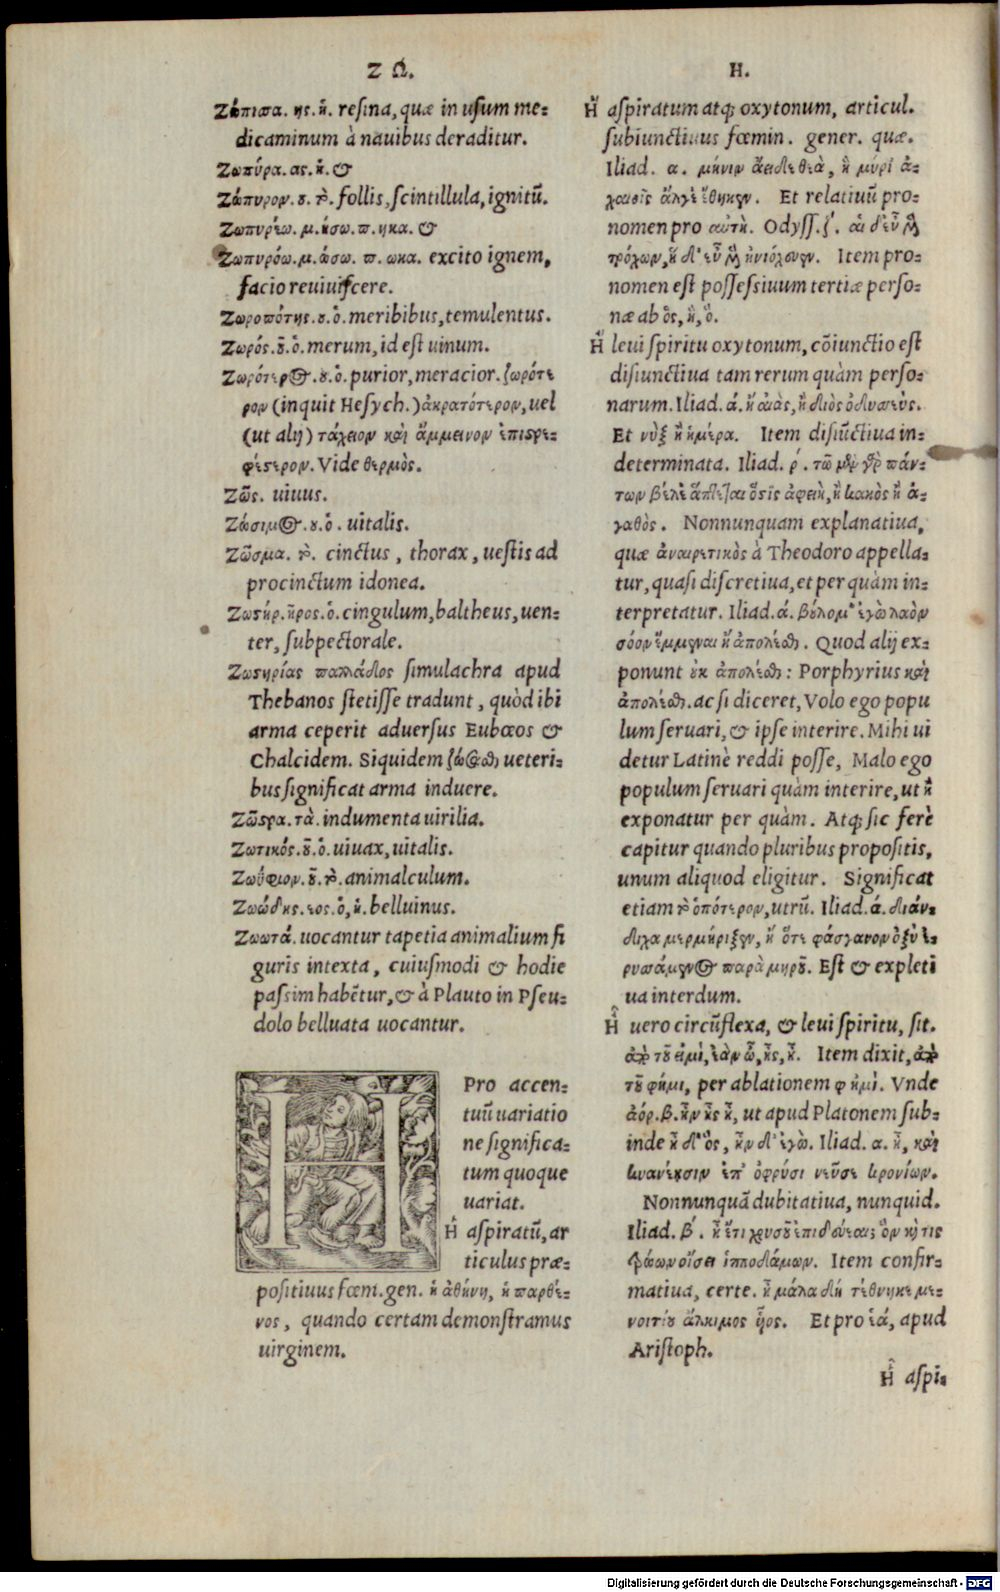 Ζ Ω.
Ζώπισσα. ης. ἡ. resina, quæ in usum me-
dicaminum à nauibus deraditur.
Ζωπύρα. ας. ἡ. &
Ζώπυρον. ου. τὸ. follis, scintillula, ignitũ.
Ζωπυρέω. μ. ήσω. π. ηκα. &
Ζωπυρόω. μ. ώσω. π. ωκα. excito ignem,
facio reuiuiscere.
Ζωροπότης. ου. ὁ. meribibus, temulentus.
Ζωρός. οῦ. ὁ. merum, id est uinum.
Ζωρότερος. ου. ὁ. purior, meracior. ζωρότε
ρον (inquit Hesych.) ἀκρατότερον, uel
(ut alij) τάχειον καὶ ἄμμεινον ἐπιστρε-
φέστερον. Vide θερμὸς.
Ζῶς. uiuus.
Ζώσιμος. ου. ὁ. uitalis.
Ζῶσμα. τὸ. cinctus, thorax, uestis ad
procinctum idonea.
Ζωστήρ. ῆρος. ὁ. cingulum, baltheus, uen-
ter, subpectorale.
Ζωστηρίας παλλάδος simulachra apud
Thebanos stetisse tradunt, quòd ibi
arma ceperit aduersus Eubœos &
Chalcidem. Siquidem ζώσασθαι ueteri-
bus significat arma induere.
Ζῶστρα. τὰ. indumenta uirilia.
Ζωτικός. οῦ. ὁ. uiuax, uitalis.
Ζωΰφιον. ου. τὸ. animalculum.
Ζωώδης. εος. ὁ, ἡ. belluinus.
Ζωωτά. uocantur tapetia animalium fi
guris intexta, cuiusmodi & hodie
passim habẽtur, & à Plauto in Pseu-
dolo belluata uocantur.
H Pro accen-
tuũ uariatio
ne significa-
tum quoque
uariat.
Ἡ aspiratũ, ar
ticulus præ-
positiuus fœm. gen. ἡ ἀθήνη, ἡ παρθέ-
νος, quando certam demonstramus
uirginem.
Η.
Ἣ aspiratum atq; oxytonum, articul.
subiunctiuus fœmin. gener. quæ.
Iliad. α. μῆνιν ἄειδε θεὰ, ἣ μυρί ἀ-
χαιοῖς ἄλγε ἔθηκεν. Et relatiuũ pro-
nomen pro αὐτή. Odyss. ζ. αἱ δ' εὖ
τρόχων, ἡ δ' εὖ ἡνιόχευεν. Item pro-
nomen est possessiuum tertiæ perso-
næ ab ὃς, ἣ, ὅ.
Ἢ leui spiritu oxytonum, cõiunctio est
disiunctiua tam rerum quàm perso-
narum. Iliad. ά. ἢ αἴας, ἢ δῖος ὀδυσσεύς.
Et νὺξ ἢ ἡμέρα. Item disiũctiua in-
determinata. Iliad. ρ. τῶν μὲν γὰρ πάν-
των βέλε ἅπτεται ὅστις ἀφείη, ἢ κακὸς ἢ ἀ-
γαθὸς. Nonnunquam explanatiua,
quæ ἀναιρετικὸς à Theodoro appella-
tur, quasi discretiua, et per quàm in-
terpretatur. Iliad. ά. βούλομ' ἐγὼ λαὸν
σόον ἔμμεναι ἢ ἀπολέσθαι. Quod alij ex-
ponunt οὐκ ἀπολέσθαι: Porphyrius καὶ
ἀπολέσθαι. ac si diceret, Volo ego popu
lum seruari, & ipse interire. Mihi ui
detur Latinè reddi posse, Malo ego
populum seruari quàm interire, ut ἢ
exponatur per quàm. Atq; sic ferè
capitur quando pluribus propositis,
unum aliquod eligitur. Significat
etiam τὸ ὁπότερον, utrũ. Iliad. ά. διάν-
διχα μερμήριξεν, ἢ ὅτε φάσγανον ὀξὺ ἐ-
ρυσσάμενος παρὰ μηροῦ. Est & expleti
ua interdum.
Ἦ uero circũflexa, & leui spiritu, sit.
ἀπὸ τοῦ εἰμὶ, ἐὰν ὦ, ᾖς, ᾖ. Item dixit, ἀπὸ
τοῦ φημι, per ablationem φ ἠμὶ. Vnde
ἀόρ. β. ἦν ἦς ἦ, ut apud Platonem sub-
inde ἦ δ' ὃς, ἦν δ' ἐγώ. Iliad. α. ἦ, καὶ
κυανέῃσιν ἐπ' ὀφρύσι νεῦσε κρονίων.
Nonnunquã dubitatiua, nunquid.
Iliad. β. ἦ ἔτι χρυσοῦ ἐπιδεύεαι; ὅν κέ τις
τρώων οἴσει ἱπποδάμων. Item confir-
matiua, certe. ἦ μάλα δὴ τέθνηκε με-
νοιτίου ἄλκιμος υἱός. Et pro , apud
Aristoph.
Ἡ aspi-
Digitalisierung gefördert durch die Deutsche Forschungsgemeinschaft - DFG